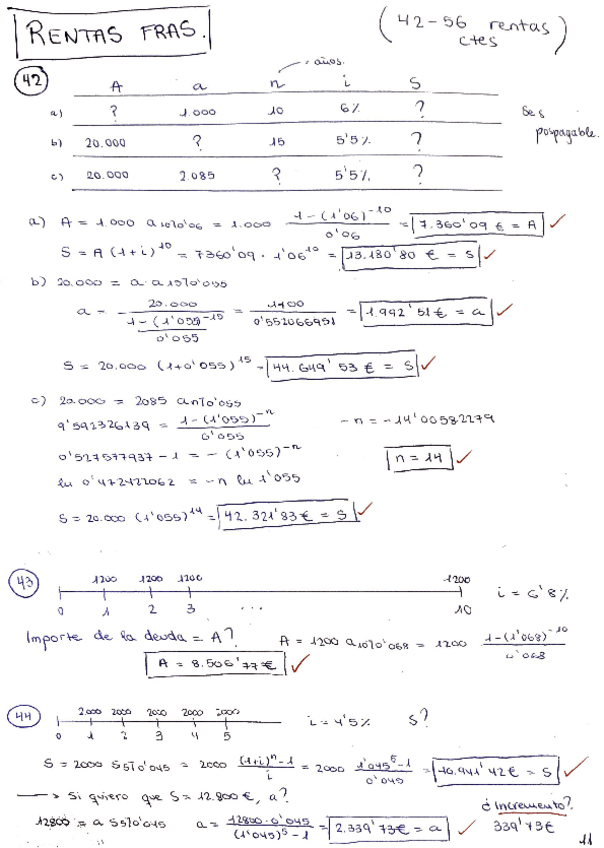 RENTAS FRAS.
(42-56 rentas ctes)
42
años.
A a n i S
a) ? 1.000 10 6% ?
b) 20.000 ? 15 5'5% ?
c) 20.000 2.085 ? 5'5% ?
pospagable.
a) A = 1.000 a10⌉0'06 = 1.000 (1-(1'06)^-10)/0'06 = 7.360'09 € = A ✓
S = A (1+i)^10 = 7360'09 · 1'06^10 = 13.180'80 € = S ✓
b) 20.000 = a · a15⌉0'055
a = 20.000/((1-(1'055)^-15)/0'055) = 1100/0'552066951 = 1.992'51 € = a ✓
S = 20.000 (1+0'055)^15 = 44.649'53 € = S ✓
c) 20.000 = 2085 an⌉0'055
9'592326139 = (1-(1'055)^-n)/0'055
-n = -14'00582279
0'527577937 - 1 = -(1'055)^-n
n = 14 ✓
ln 0'472422062 = -n ln 1'055
S = 20.000 (1'055)^14 = 42.321'83 € = S ✓
43
1200 1200 1200 1200
0 1 2 3 ... 10
i = 6'8%
Importe de la deuda = A?
A = 1200 a10⌉0'068 = 1200 (1-(1'068)^-10)/0'068
A = 8.506'77 € ✓
44
2000 2000 2000 2000 2000
0 1 2 3 4 5
i = 4'5% S?
S = 2000 S5⌉0'045 = 2000 ((1+i)^n-1)/i = 2000 (1'045^5-1)/0'045 = 10.941'42 € = S ✓
→ Si quiero que S = 12.800 €, a?
¿Incremento?
12800 = a S5⌉0'045 a = (12800·0'045)/((1'045)^5-1) = 2.339'73 € = a ✓ 339'73 €
11